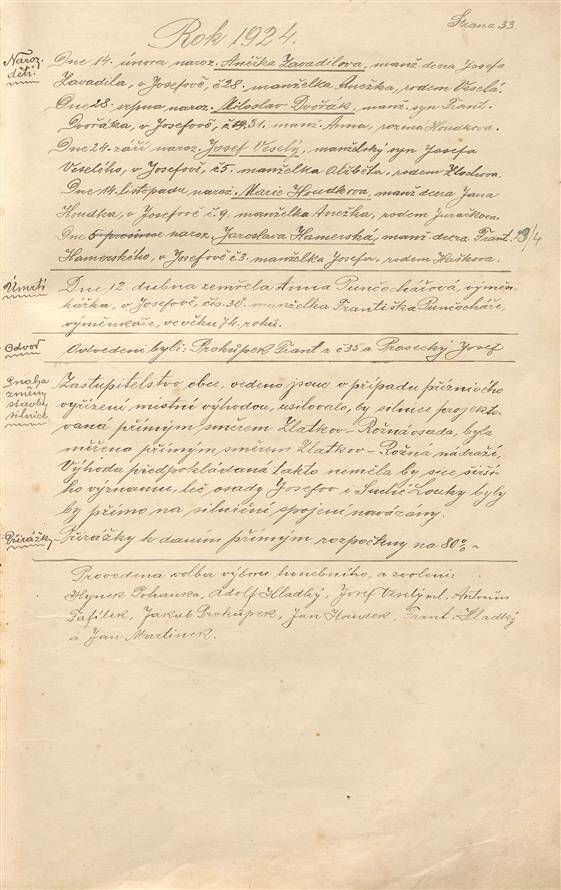 Strana 33.
Rok 1924.
Naroz. dětí.
Dne 14. února naroz. Anežka Zavadilova, manž. dcera Josefa
Zavadila, v Josefově, č 28. manželka Anežka, rodem Veselá.
Dne 28. srpna naroz. Miloslav Dvořák, manž. syn Frant.
Dvořáka, v Josefově, č 31. manž. Anna, rozená Houdkova.
Dne 24. září naroz. Josef Veselý, manželský syn Josefa
Veselého, v Josefově, č 5. manželka Alžběta, rodem
Dne 14. listopadu naroz. Marie Houdkova, manž dcera Jana
Houdka, v Josefově č 9. manželka Anežka, rodem Juračkova.
Dne 5 prosince naroz. Jaroslava Hamerská, manž. dcera Frant. 3/4
Hamerského, v Josefově č 3. manželka Josefa, rodem Haškova.
Úmrtí
Dne 12 dubna zemřela Anna Punčochářová, výměn-
kářka, v Josefově, čís. 38. manželka Františka Punčocháře,
výměnkáře, ve věku 74. roků.
Odvod
Odvedeni byli: Prokůpek Frant z č 35 a Prosecký Josef
Snaha
změny
stavby
silnice
Zastupitelstvo obce, vedeno jsouc v případu příznivého
vyřízení místní výhodou, usilovalo, by silnice projekto-
vaná přímým směrem Zlatkov - Rožná osada, byla
měřena přímým směrem Zlatkov - Rožná nádraží,
Výhoda předpokládaná takto neměla by sice širší-
ho významu, leč osady Josefov i Suché Louky byly
by přímo na silniční spojení navázány.
Přirážky
Přirážky k daním přímým rozpočteny na 80%
Provedena volba výboru honebního, a zvoleni:
Hynek Pohanka, Adolf Hladký, Josef Veselý ml. Antonín
Fafílek, Jakub Prokůpek, Jan Houdek, Frant. Hladký
a Jan Martinek.